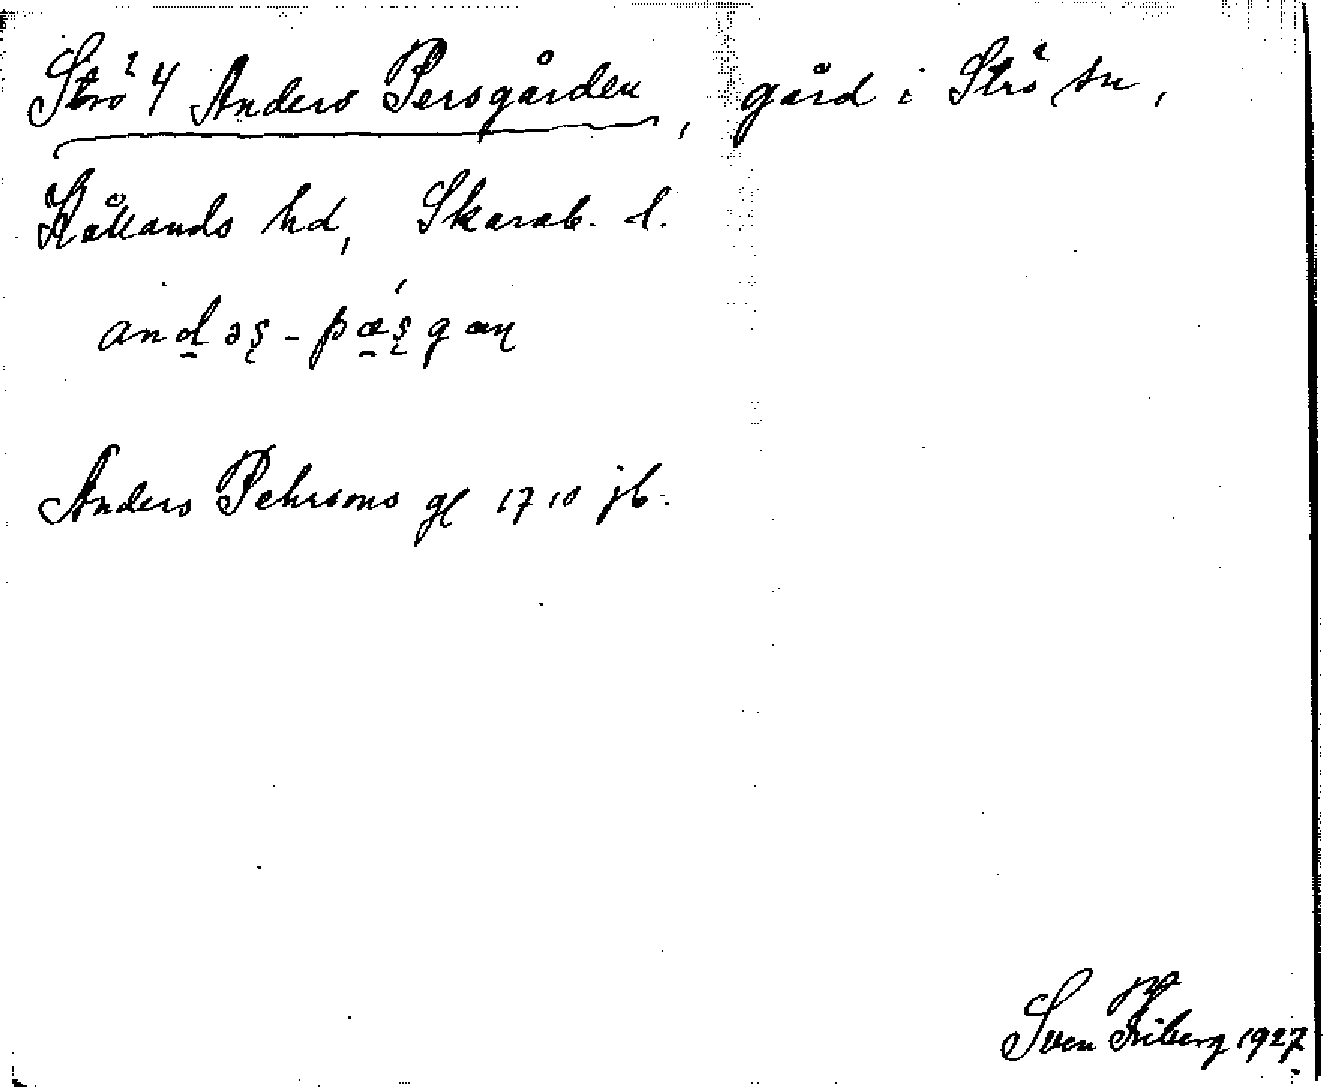 Strö 4 Anders Persgården, gård i Strö sn,
Kållands hd, Skarab. l.
andəʂ-pǽʂgaɳ
Anders Pehrsons gl 1710 jb.
Sven Friberg 1927